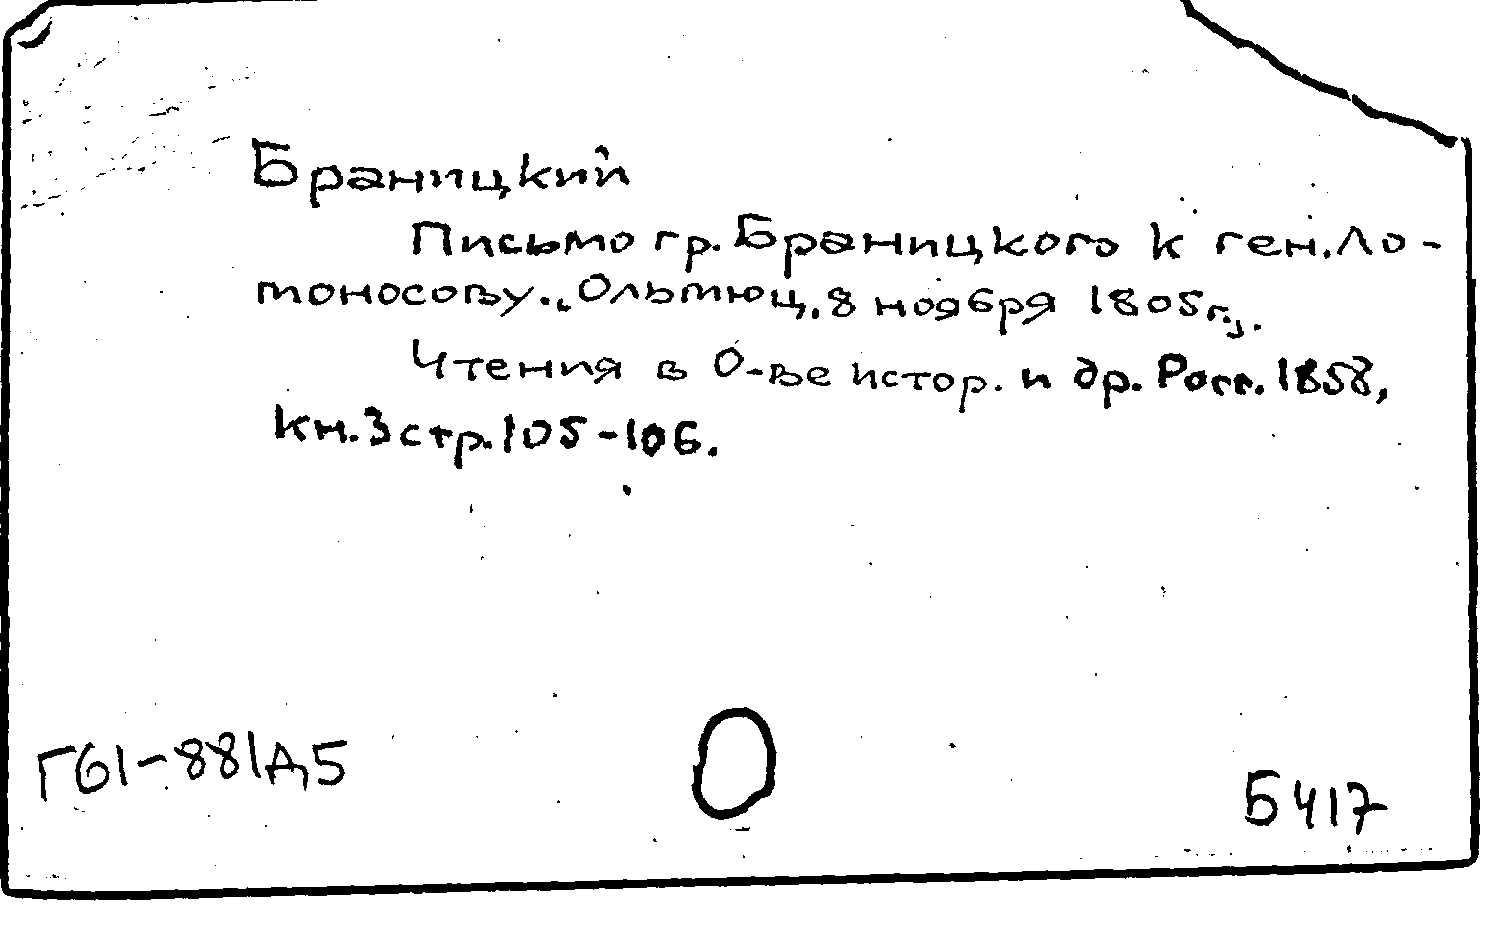 Браницкий
Письмо гр. Браницкого к ген. Ло-
моносову. „Ольмюц, 8 ноября 1805 г.".
Чтения в О-ве истор. и др. Росс. 1858,
кн. 3 стр. 105-106.
Г61-881Д5
Б417